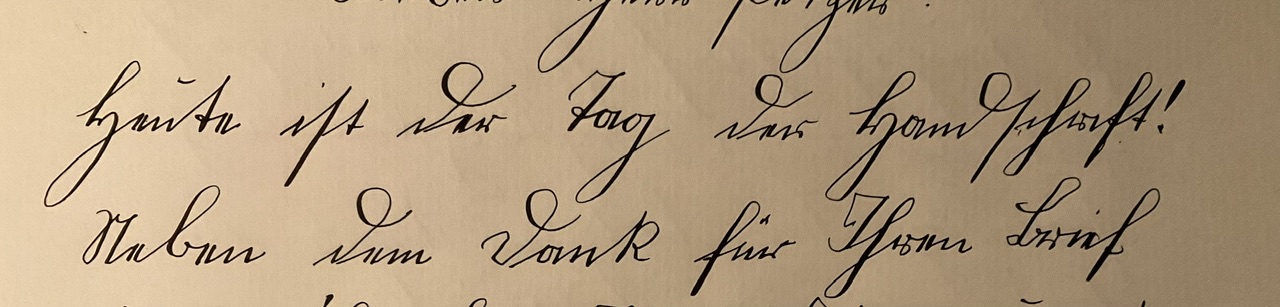 Heute ist der Tag der Handschrift!
Neben dem Dank für Ihren Brief